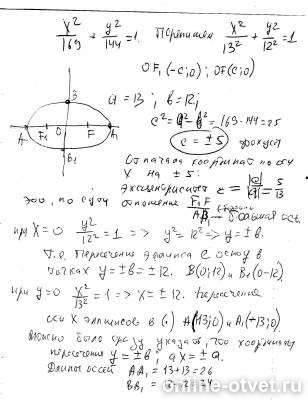 x²/169 + y²/144 = 1. Перепишем x²/13² + y²/12² = 1
OF₁(-c;0); OF(c;0)
B
a = 13; b = 12;
c² = a² - b² = 169-144=25
A F₁ O F A₁
c = ±5
B₁
координат по оси
X на ±5.
Эксцентриситет = |c|/|a| = 5/13
это, по сути отношение F₁F/AA₁
большая ось.
при X=0 y²/12² = 1 => y² = 12² => y = ±b.
Т.о. Пересечение эллипса с осью в
точках y = ±b = ±12. B(0;12) и B₁(0-12)
при y=0 x²/13² = 1 => x = ±12. пересечение
оси X эллипсов в (.) A(13;0) и A₁(+13;0)
Можно было сразу указать, что координаты
пересечения y = ±b; a x = ±a.
Длины осей AA₁ = 13+13 = 26
BB₁ = 12+12 = 24
online-otvet.ru